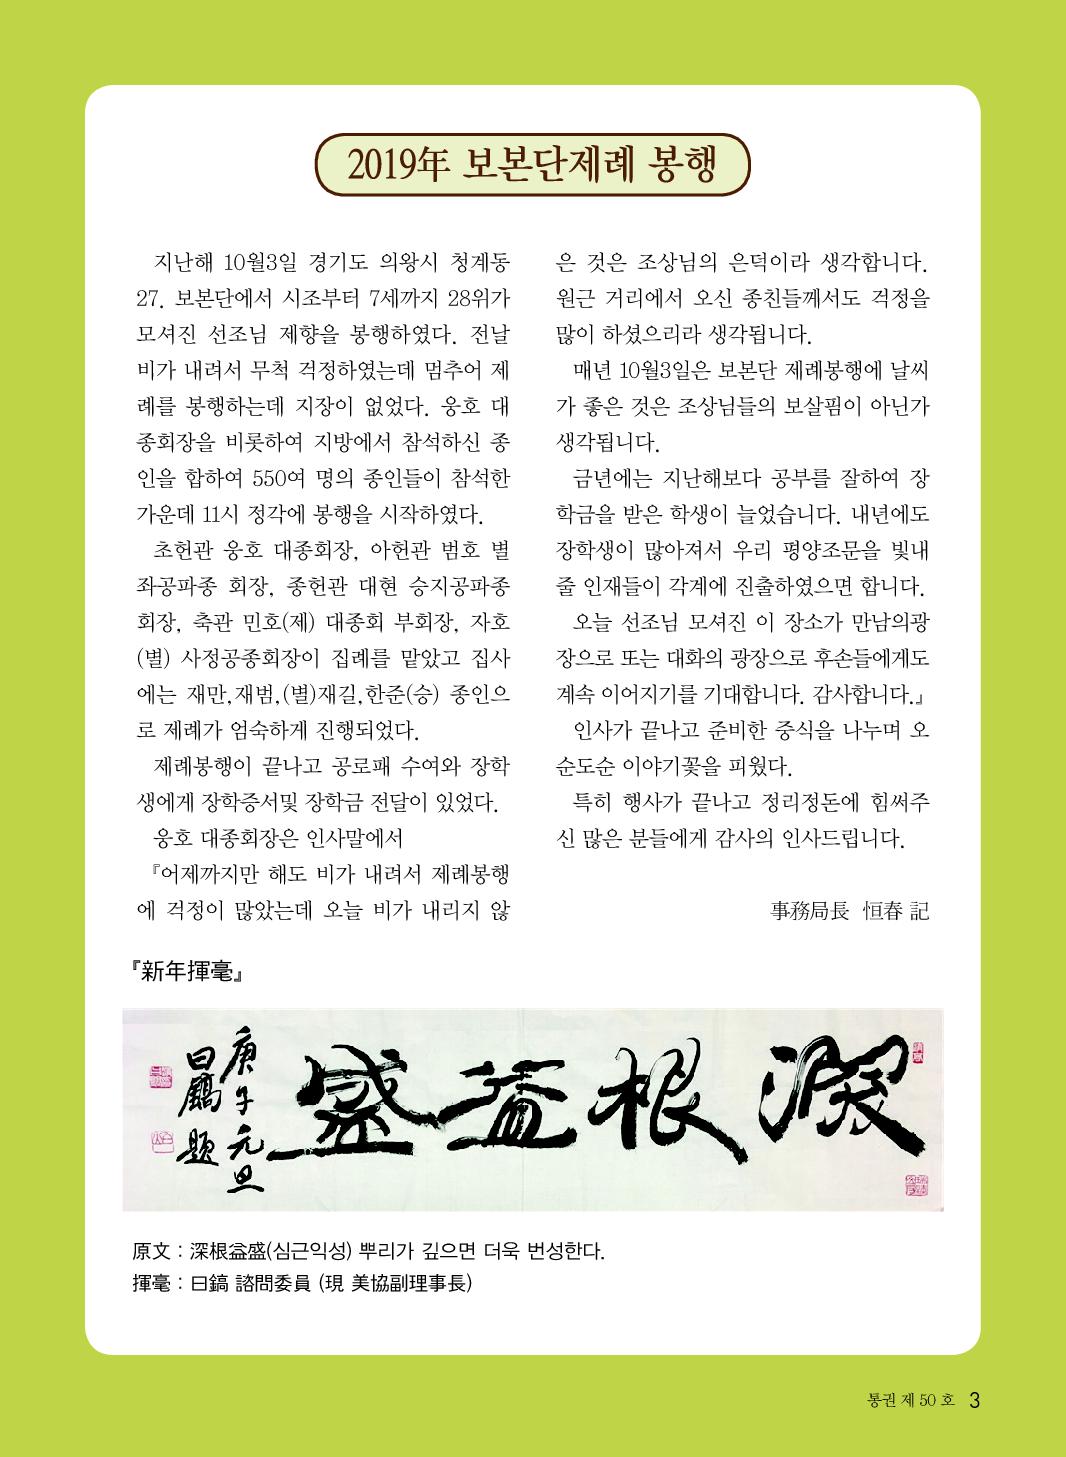 2019年 보본단제례 봉행
지난해 10월3일 경기도 의왕시 청계동
27. 보본단에서 시조부터 7세까지 28위가
모셔진 선조님 제향을 봉행하였다. 전날
비가 내려서 무척 걱정하였는데 멈추어 제
례를 봉행하는데 지장이 없었다. 웅호 대
종회장을 비롯하여 지방에서 참석하신 종
인을 합하여 550여 명의 종인들이 참석한
가운데 11시 정각에 봉행을 시작하였다.
초헌관 웅호 대종회장, 아헌관 범호 별
좌공파종 회장, 종헌관 대현 승지공파종
회장, 축관 민호(제) 대종회 부회장, 자호
(별) 사정공종회장이 집례를 맡았고 집사
에는 재만,재범,(별)재길,한준(승) 종인으
로 제례가 엄숙하게 진행되었다.
제례봉행이 끝나고 공로패 수여와 장학
생에게 장학증서및 장학금 전달이 있었다.
웅호 대종회장은 인사말에서
『어제까지만 해도 비가 내려서 제례봉행
에 걱정이 많았는데 오늘 비가 내리지 않
은 것은 조상님의 은덕이라 생각합니다.
원근 거리에서 오신 종친들께서도 걱정을
많이 하셨으리라 생각됩니다.
매년 10월3일은 보본단 제례봉행에 날씨
가 좋은 것은 조상님들의 보살핌이 아닌가
생각됩니다.
금년에는 지난해보다 공부를 잘하여 장
학금을 받은 학생이 늘었습니다. 내년에도
장학생이 많아져서 우리 평양조문을 빛내
줄 인재들이 각계에 진출하였으면 합니다.
오늘 선조님 모셔진 이 장소가 만남의광
장으로 또는 대화의 광장으로 후손들에게도
계속 이어지기를 기대합니다. 감사합니다.』
인사가 끝나고 준비한 중식을 나누며 오
순도순 이야기꽃을 피웠다.
특히 행사가 끝나고 정리정돈에 힘써주
신 많은 분들에게 감사의 인사드립니다.
事務局長 恒春 記
『新年揮毫』
深根益盛
庚子元旦
曰鎬題
原文 : 深根益盛(심근익성) 뿌리가 깊으면 더욱 번성한다.
揮毫 : 曰鎬 諮問委員 (現 美協副理事長)
통권 제 50 호 3